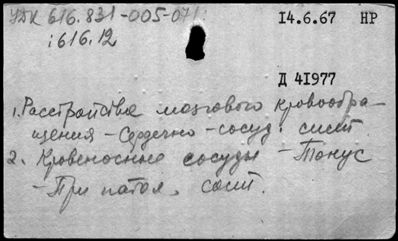 УДК 616.831-005-071: 14.6.67 НР
:616.12
Д 41977
1. Расстройства мозгового кровообра-
щения - Сердечно - сосуд. сист
2. Кровеносные сосуды - Тонус
- При патол. сост.